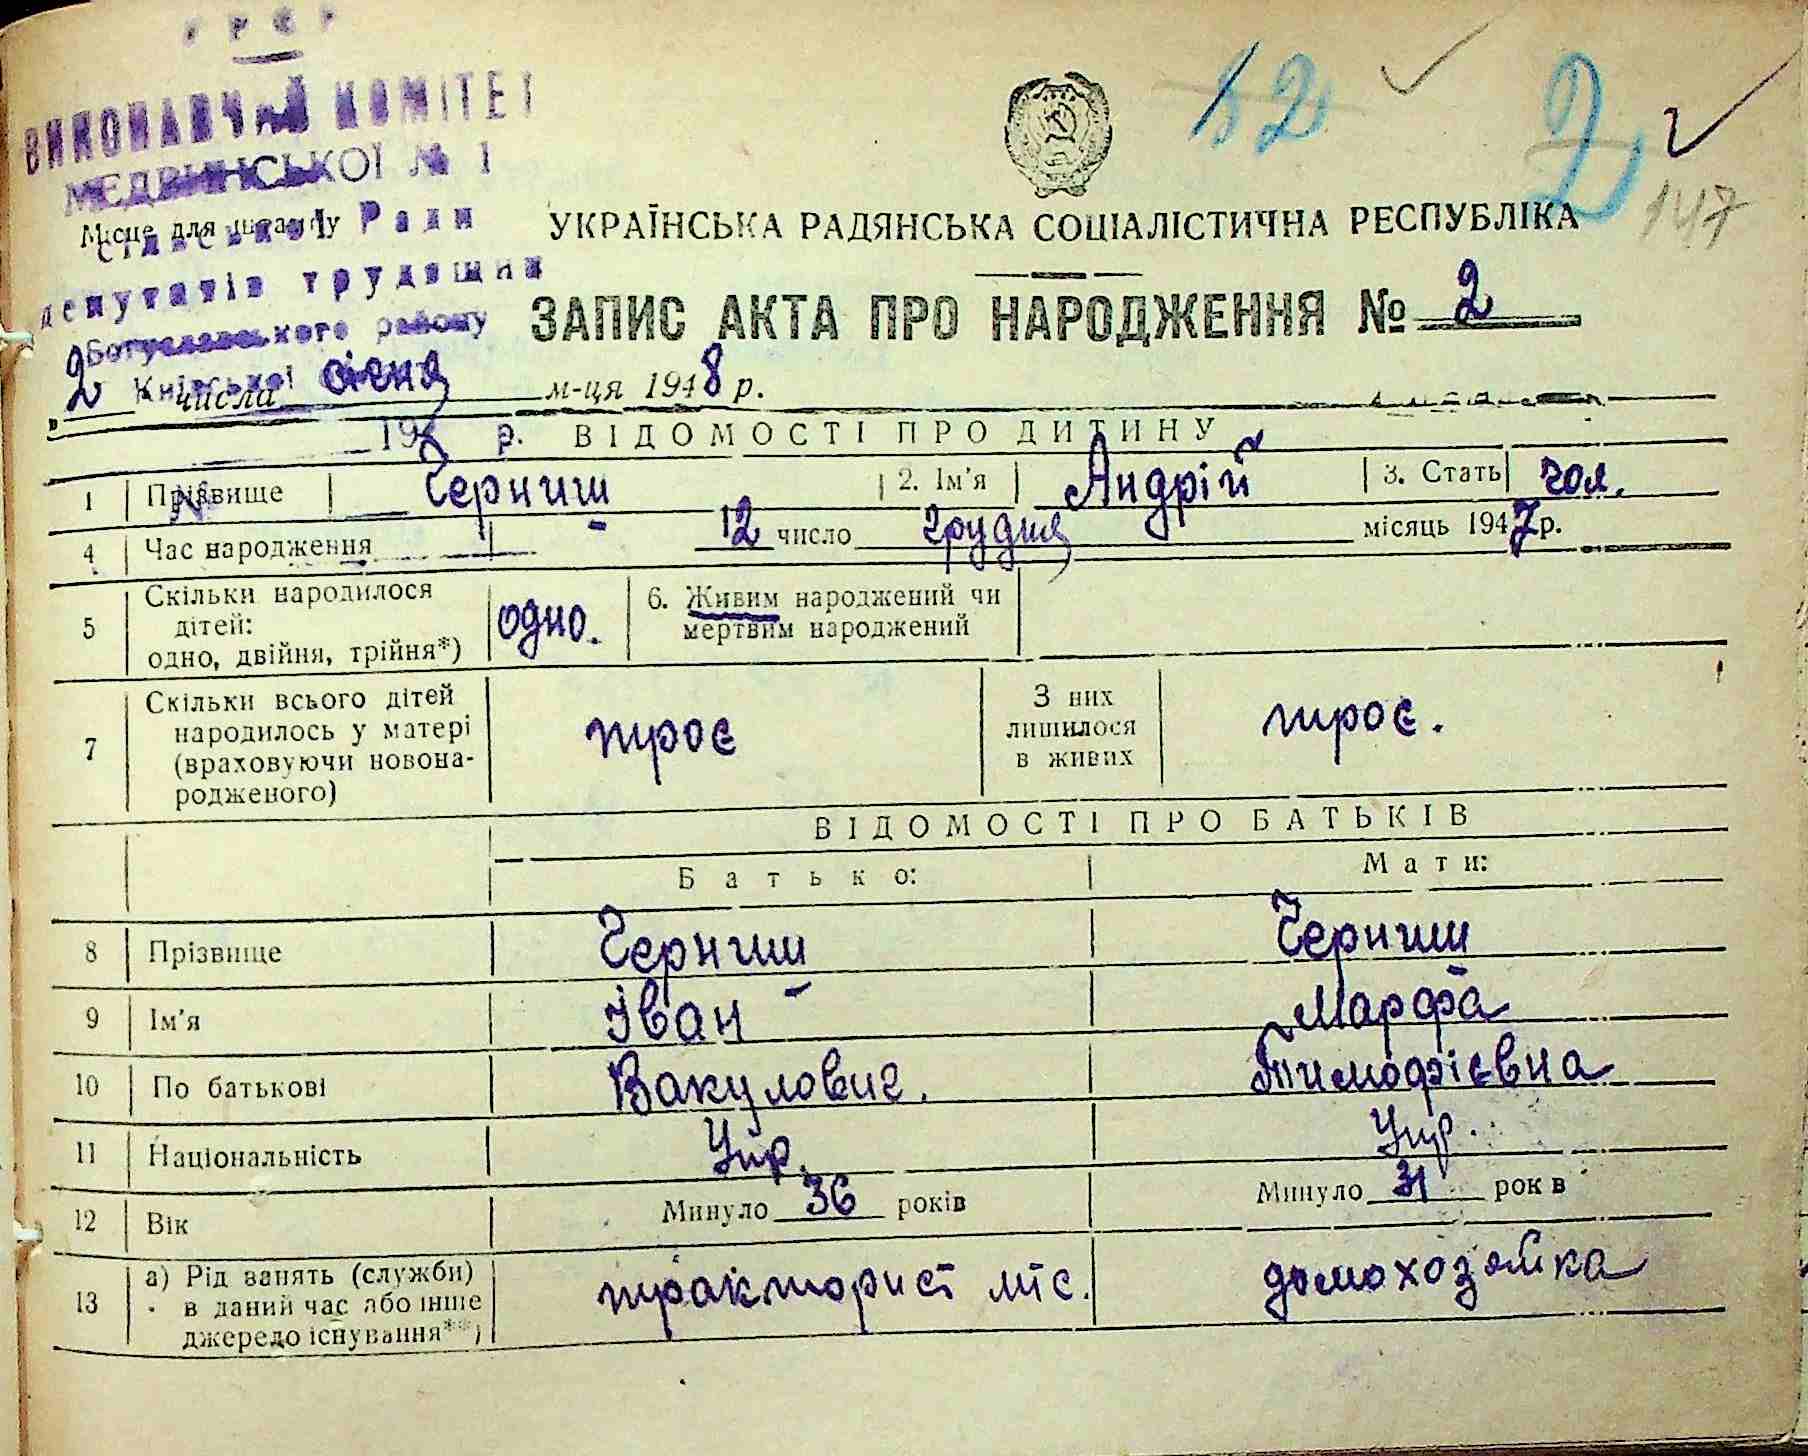 УРСР
ВИКОНАВЧИЙ КОМІТЕТ
МЕДВИНСЬКОЇ № 1
Місце для штампу
сільської Ради
депутатів трудящих
Богуславського району
Київської
12
2
147
УКРАЇНСЬКА РАДЯНСЬКА СОЦІАЛІСТИЧНА РЕСПУБЛІКА
ЗАПИС АКТА ПРО НАРОДЖЕННЯ № 2
„2 числа січня м-ця 1948 р.
194 р.
ВІДОМОСТІ ПРО ДИТИНУ
1 Прізвище Черниш 2. Ім'я Андрій 3. Стать чол.
№
4 Час народження 12 число грудня місяць 1947 р.
5 Скільки народилося дітей: одно, двійня, трійня*) одно. 6. Живим народжений чи мертвим народжений
7 Скільки всього дітей народилось у матері (враховуючи новонародженого) троє З них лишилося в живих троє.
ВІДОМОСТІ ПРО БАТЬКІВ
Батько: Мати:
8 Прізвище Черниш Черниш
9 Ім'я Іван Марфа
10 По батькові Вакулович. Тимофієвна
11 Національність Укр. Укр.
12 Вік Минуло 36 років Минуло 31 рок в
13 а) Рід занять (служби) в даний час або інше джерело існування**) тракторист мтс. домохозяйка